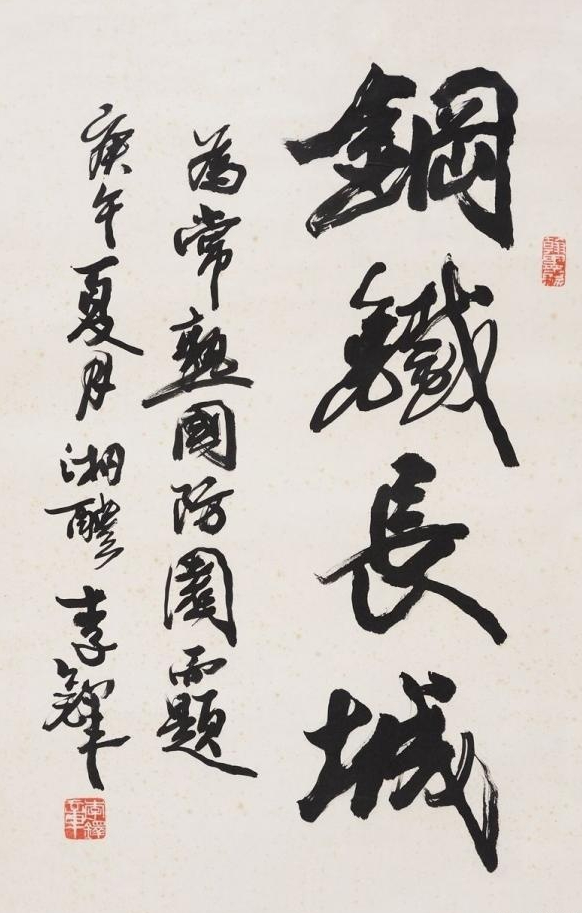 鋼鐵長城
為常熟國防園而題
庚午夏月湘醴李鐸